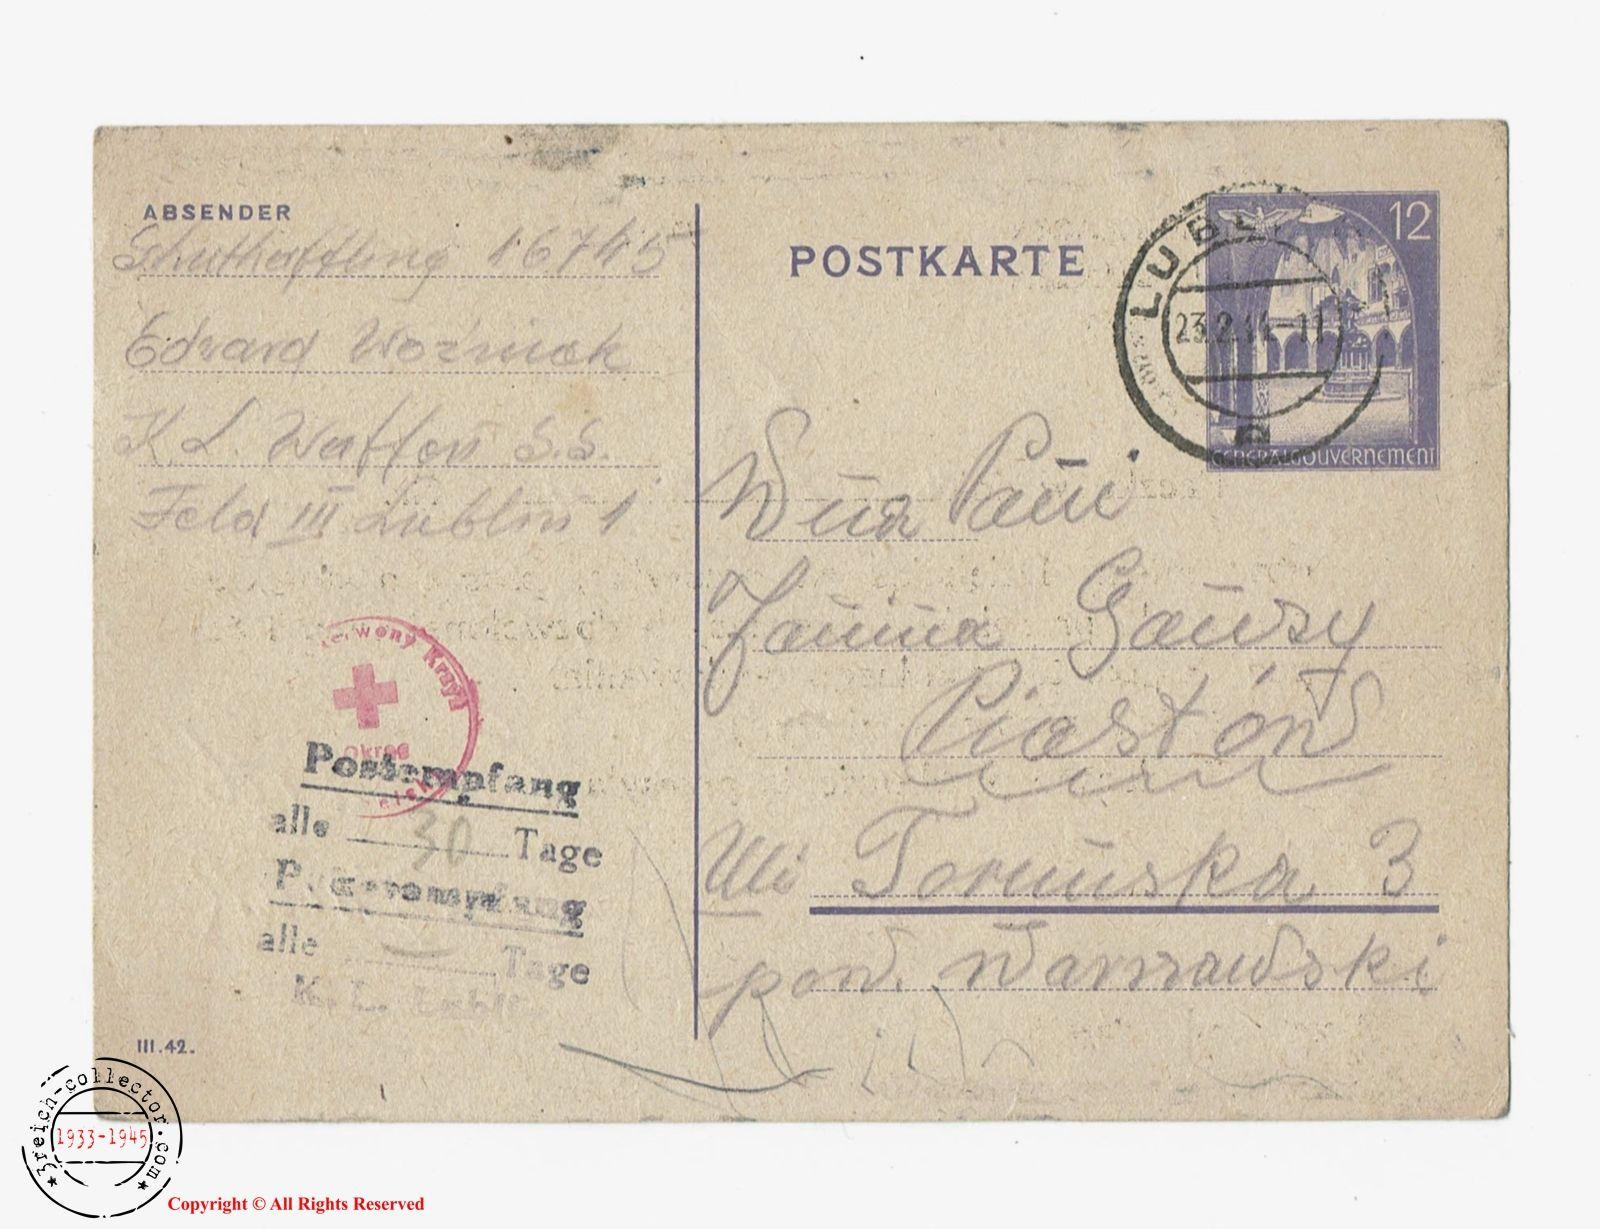 ABSENDER
Schuthäftling 16745
Edward Wozniak
K. L. Waffen S.S.
Feld III Lublin 1
POSTKARTE
12
GENERALGOUVERNEMENT
LUBLIN
23.2.44-11
Janina
Piastów
Ul. Toruńska 3
pow. Warszawski
Czerwony Krzyż
Okręg
Postempfang
alle 30 Tage
Paketempfang
alle — Tage
K. L. Lublin
III.42.
3reich-collector.com
1933-1945
Copyright © All Rights Reserved